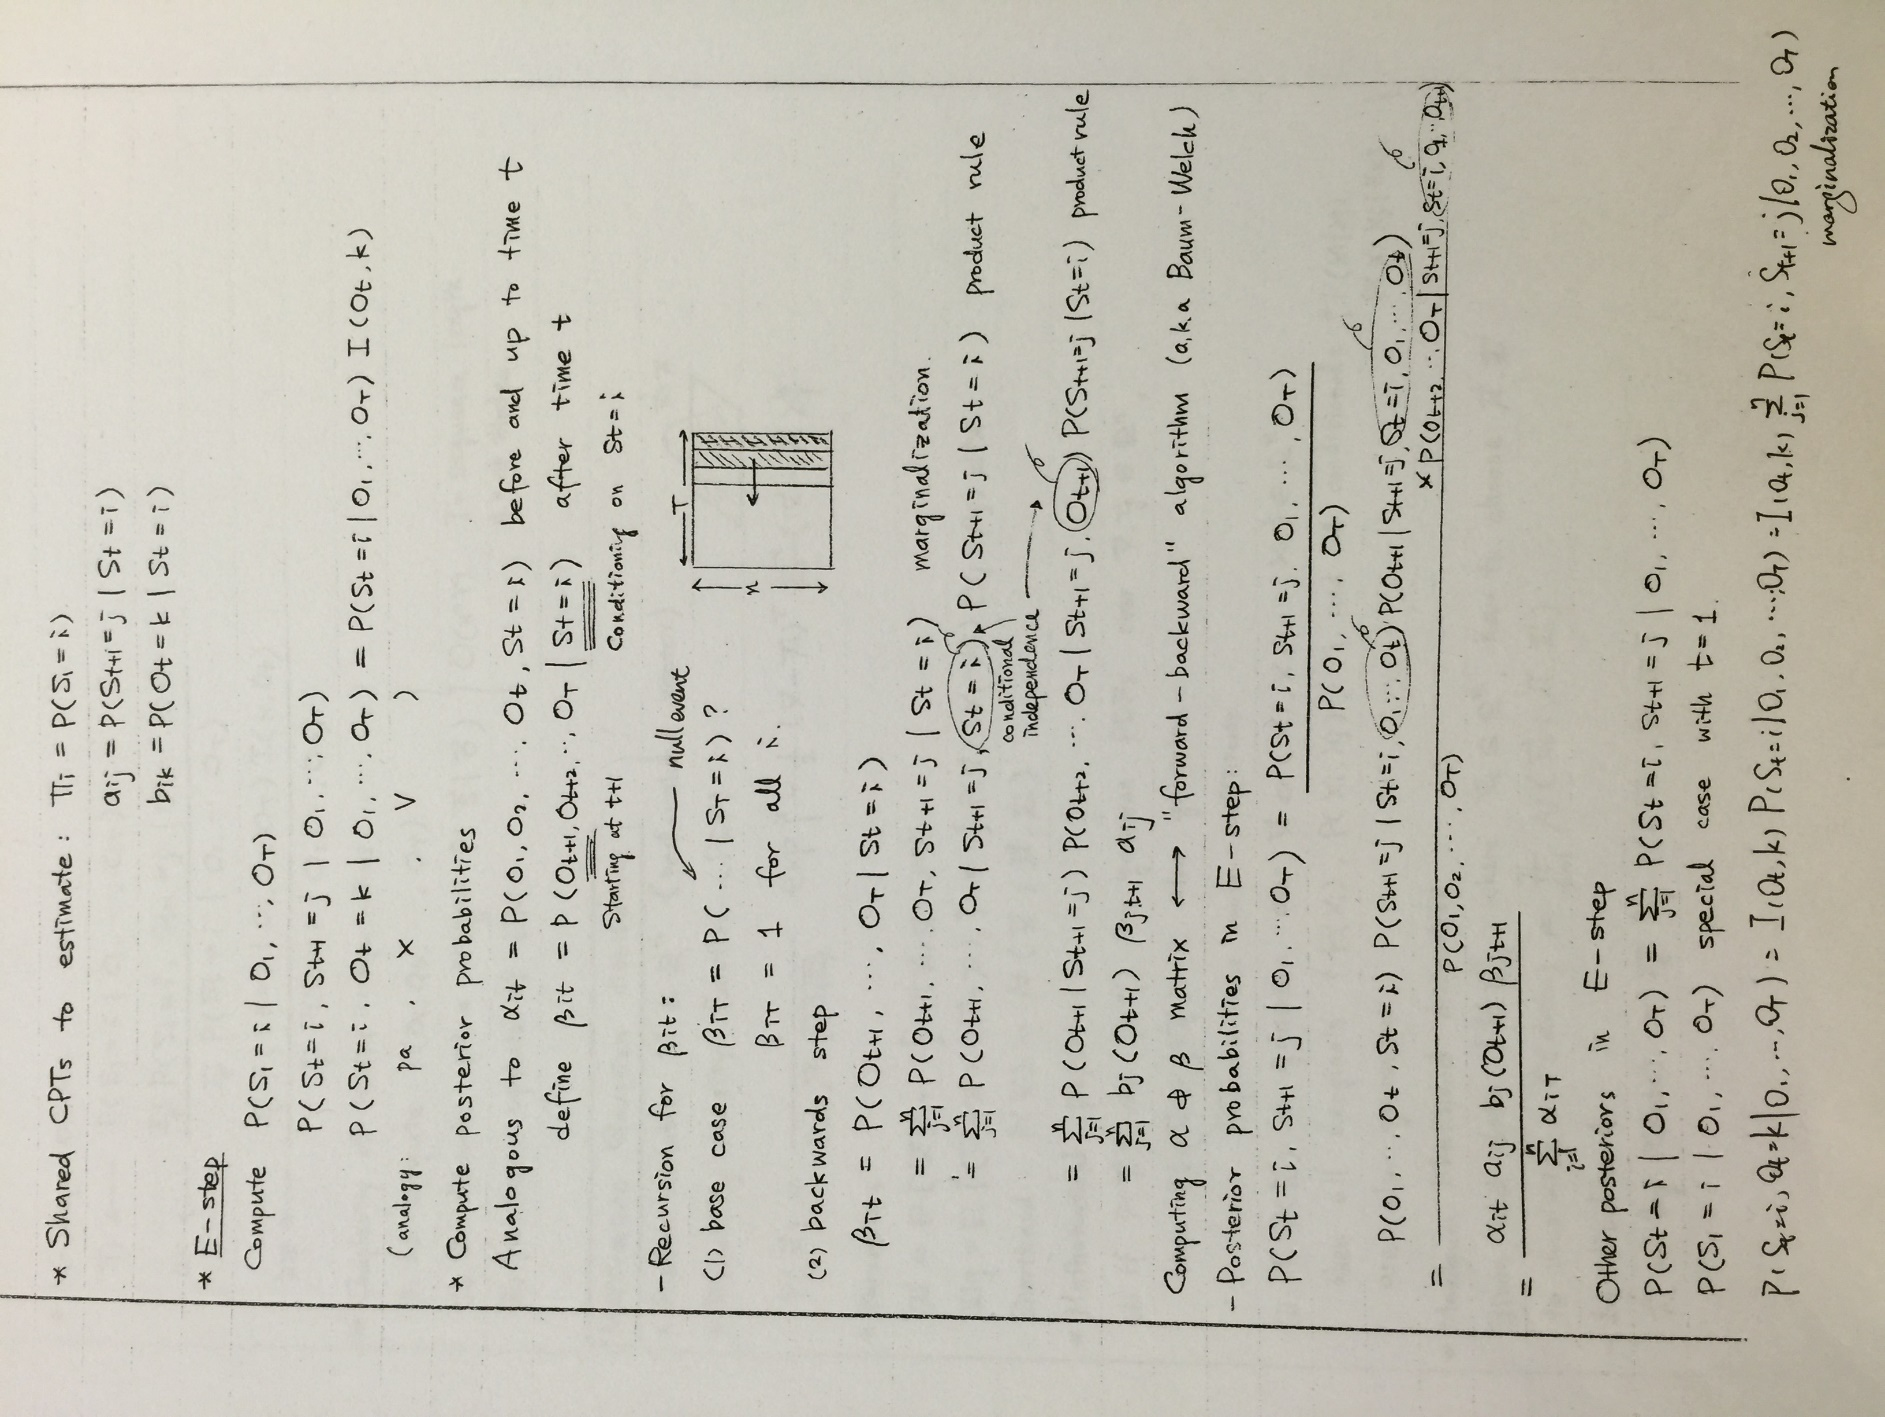 * Shared CPTs to estimate : πi = P(S1 = i)
aij = P(St+1 = j | St = i)
bik = P(Ot = k | St = i)
* E-step
Compute P(S1 = i | O1, ..., OT)
P(St = i, St+1 = j | O1, ..., OT)
P(St = i, Ot = k | O1, ..., OT) = P(St = i | O1, ..., OT) I(Ot, k)
(analogy: pa , x , V )
* Compute posterior probabilities
Analogous to αit = P(O1, O2, ..., Ot, St = i) before and up to time t
define βit = P(Ot+1, Ot+2, ..., OT | St = i) after time t
Starting at t+1 Conditioning on St = i
- Recursion for βit :
null event
(1) base case βiT = P( ... | ST = i) ?
βiT = 1 for all i.
T
n
(2) backwards step
βit = P(Ot+1, ..., OT | St = i)
= Σ j=1 n P(Ot+1, ..., OT, St+1 = j | St = i) marginalization.
= Σ j=1 n P(Ot+1, ..., OT | St+1 = j, St = i) P(St+1 = j | St = i) product rule
conditional independence
= Σ j=1 n P(Ot+1 | St+1 = j) P(Ot+2, ..., OT | St+1 = j, Ot+1) P(St+1 = j | St = i) product rule
= Σ j=1 n bj(Ot+1) βjt+1 aij
Computing α & β matrix ↔ "forward-backward" algorithm (a.k.a Baum-Welch)
- Posterior probabilities in E-step:
P(St = i, St+1 = j | O1, ..., OT) = P(St = i, St+1 = j, O1, ..., OT)
P(O1, ..., OT)
P(O1, ..., Ot, St = i) P(St+1 = j | St = i, O1, ..., Ot) P(Ot+1 | St+1 = j, St = i, O1, ..., Ot)
× P(Ot+2, ..., OT | St+1 = j, St = i, O1, ..., Ot+1)
=
P(O1, O2, ..., OT)
αit aij bj(Ot+1) βjt+1
=
Σ i=1 n αiT
Other posteriors in E-step
P(St = i | O1, ..., OT) = Σ j=1 n P(St = i, St+1 = j | O1, ..., OT)
P(S1 = i | O1, ..., OT) special case with t = 1.
P(St = i, Ot = k | O1, ..., OT) = I(Ot, k) P(St = i | O1, O2, ..., OT) = I(Ot, k) Σ j=1 n P(St = i, St+1 = j | O1, O2, ..., OT)
marginalization